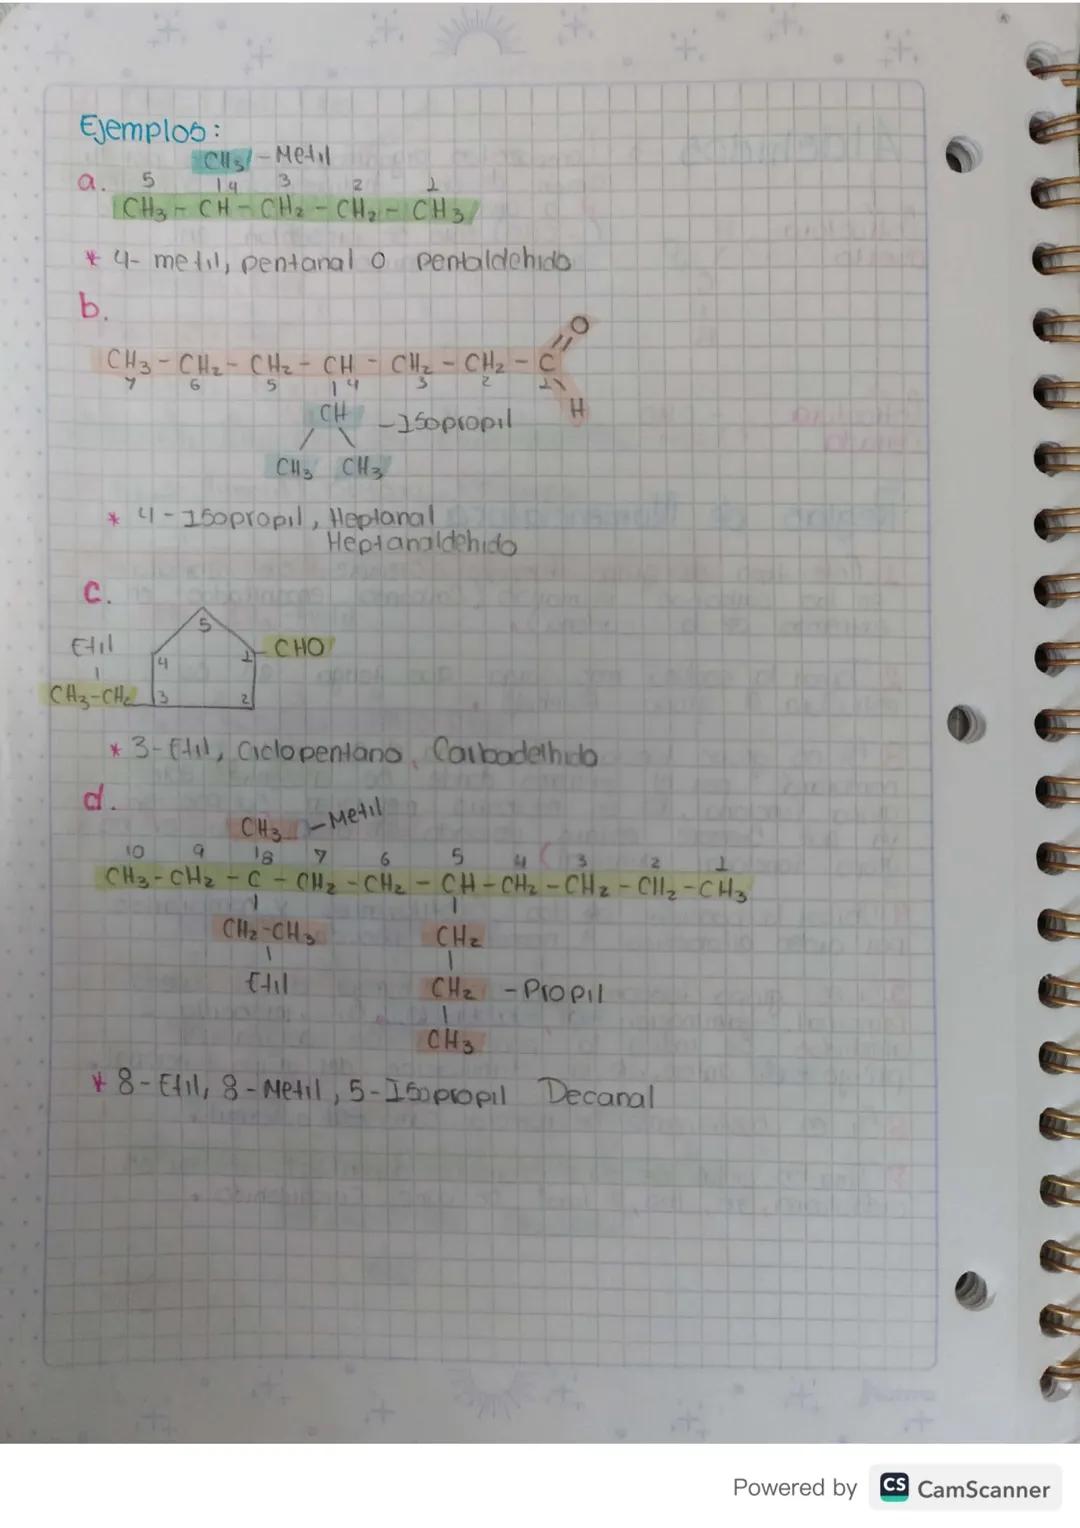 Ejemplos:
CH3 - Metil
a. 5 4 3 2 1
CH3 - CH - CH2 - CH2 - CH3
* 4- metil, pentanal o pentaldehido
b.
O
CH3 - CH2 - CH2 - CH - CH2 - CH2 - C
7 6 5 4 3 2 1
H
CH - Isopropil
CH3 CH3
* 4 - Isopropil, Heptanal
Heptanaldehido
c.
5
Etil 4 1 CHO
CH3-CH2 3 2
* 3-Etil, Ciclopentano, Carbadelhido
d.
CH3 - Metil
10 9 8 7 6 5 4 3 2 1
CH3 - CH2 - C - CH2 - CH2 - CH - CH2 - CH2 - CH2 - CH3
CH2-CH3 CH2
Etil CH2 - Propil
CH3
* 8-Etil, 8-Metil, 5-Isopropil Decanal
Powered by CS CamScanner